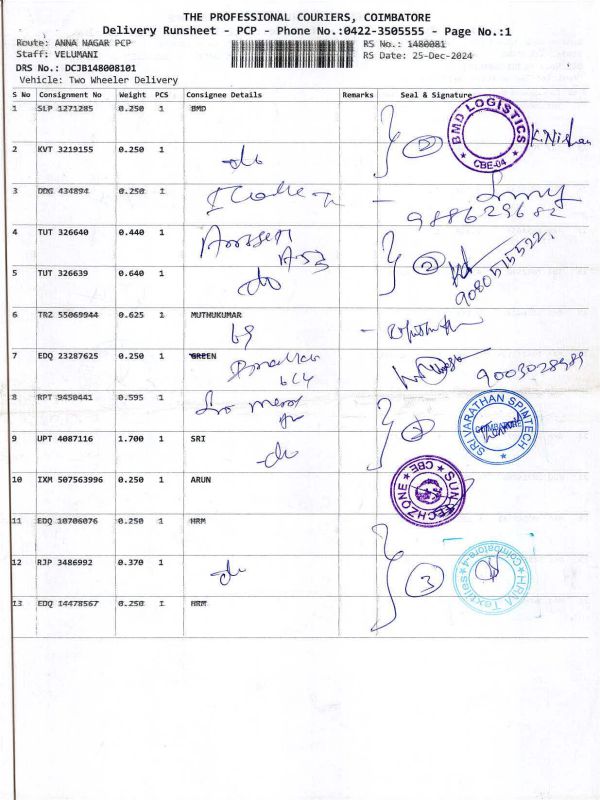 THE PROFESSIONAL COURIERS, COIMBATORE
Delivery Runsheet - PCP - Phone No.:0422-3505555 - Page No.:1
Route: ANNA NAGAR PCP
RS No.: 1480081
Staff: VELUMANI
RS Date: 25-Dec-2024
DRS No.: DCJB148008101
Vehicle: Two Wheeler Delivery
S No Consignment No Weight PCS Consignee Details Remarks Seal & Signature
1 SLP 1271285 0.250 1 BMD
BMD LOGISTICS
CBE-04
K.Nishan
2 KVT 3219155 0.250 1
do
2
3 DDG 434894 0.250 1
988629682
4 TUT 326640 0.440 1
5 TUT 326639 0.640 1
do
2
9080515522
6 TRZ 55069944 0.625 1 MUTHUKUMAR
69
7 EDQ 23287625 0.250 1 GREEN
9003028989
8 RPT 9450441 0.595 1
SRI VARATHAN SPINTECH
COIMBATORE
9 UPT 4087116 1.700 1 SRI
do
2
10 IXM 507563996 0.250 1 ARUN
SUN TECHZONE
CBE
11 EDQ 10706076 0.250 1 HRM
12 RJP 3486992 0.370 1
do
3
HRM Textiles
Coimbatore-4
13 EDQ 14478567 0.250 1 HRM